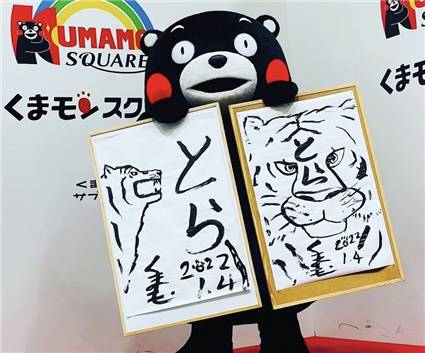 KUMAMO
SQUARE
くまモンスク
くま
とら
2022
1.4
とら
2022
1.4